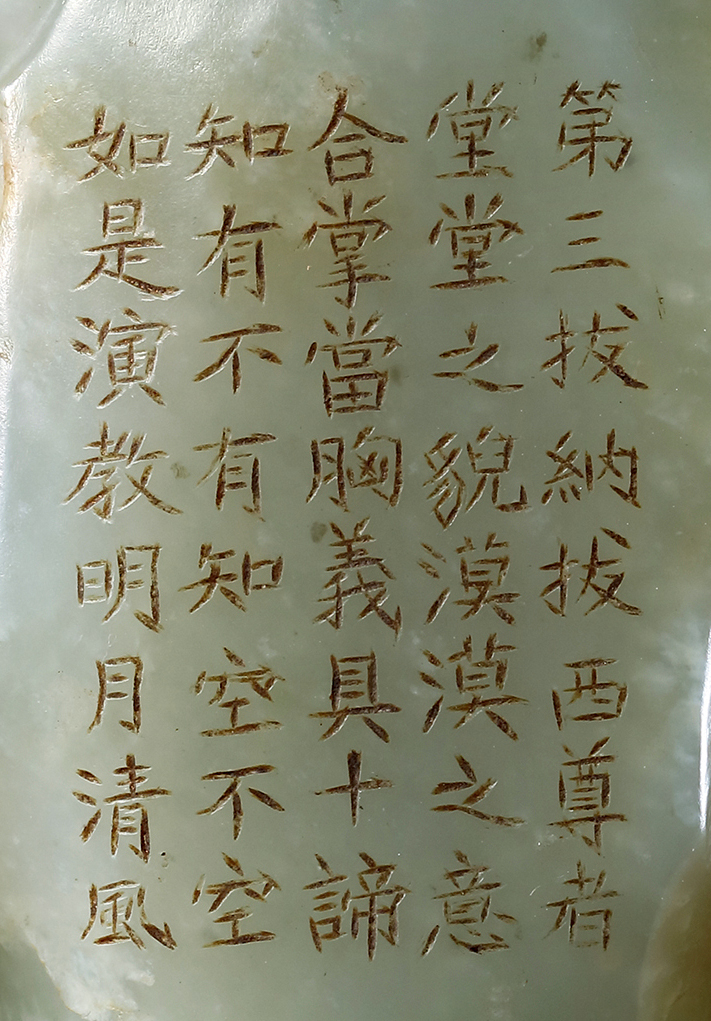 第三拔納拔西尊者
堂堂之貌漠漠之意
合掌當胸義具十諦
知有不有知空不空
如是演教明月清風